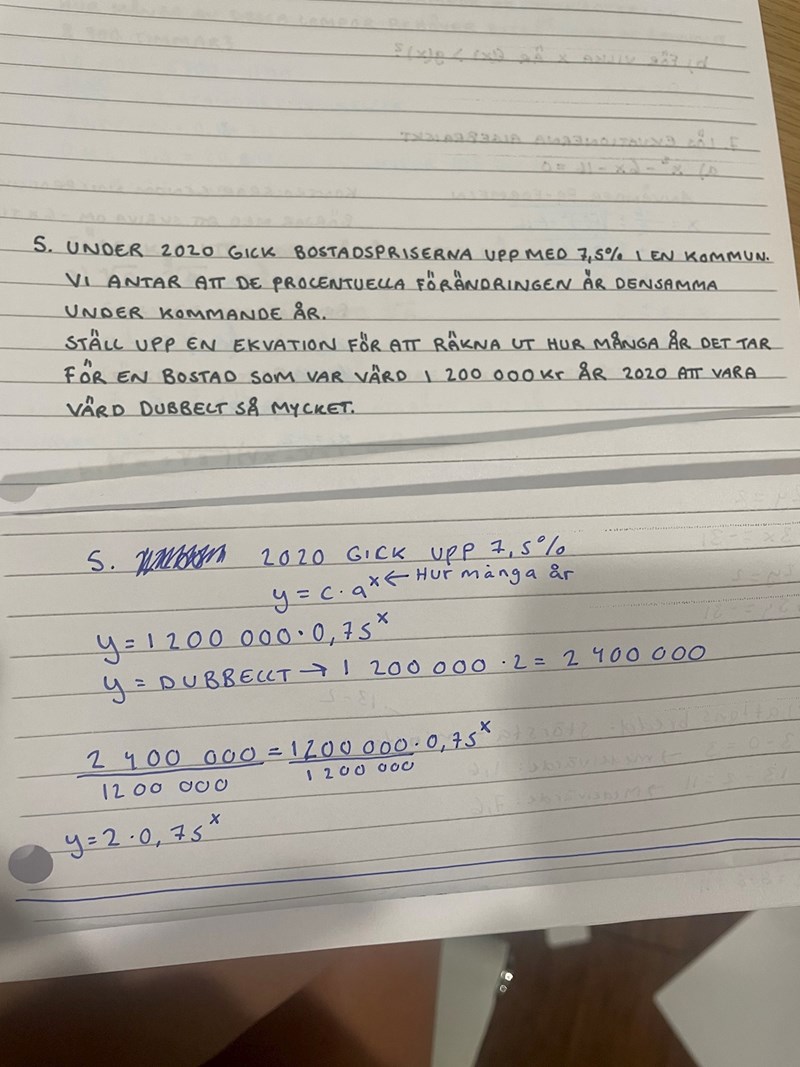 5. UNDER 2020 GICK BOSTADSPRISERNA UPP MED 7,5% I EN KOMMUN.
VI ANTAR ATT DE PROCENTUELLA FÖRÄNDRINGEN ÄR DENSAMMA
UNDER KOMMANDE ÅR.
STÄLL UPP EN EKVATION FÖR ATT RÄKNA UT HUR MÅNGA ÅR DET TAR
FÖR EN BOSTAD SOM VAR VÄRD 1 200 000 Kr ÅR 2020 ATT VARA
VÄRD DUBBELT SÅ MYCKET.
5. 2020 GICK UPP 7,5%
y = c · a^x ← Hur många år
y = 1 200 000 · 0,75^x
y = DUBBELLT → 1 200 000 · 2 = 2 400 000
2 400 000 = 1200 000 · 0,75^x
1200 000 1 200 000
y = 2 · 0,75^x